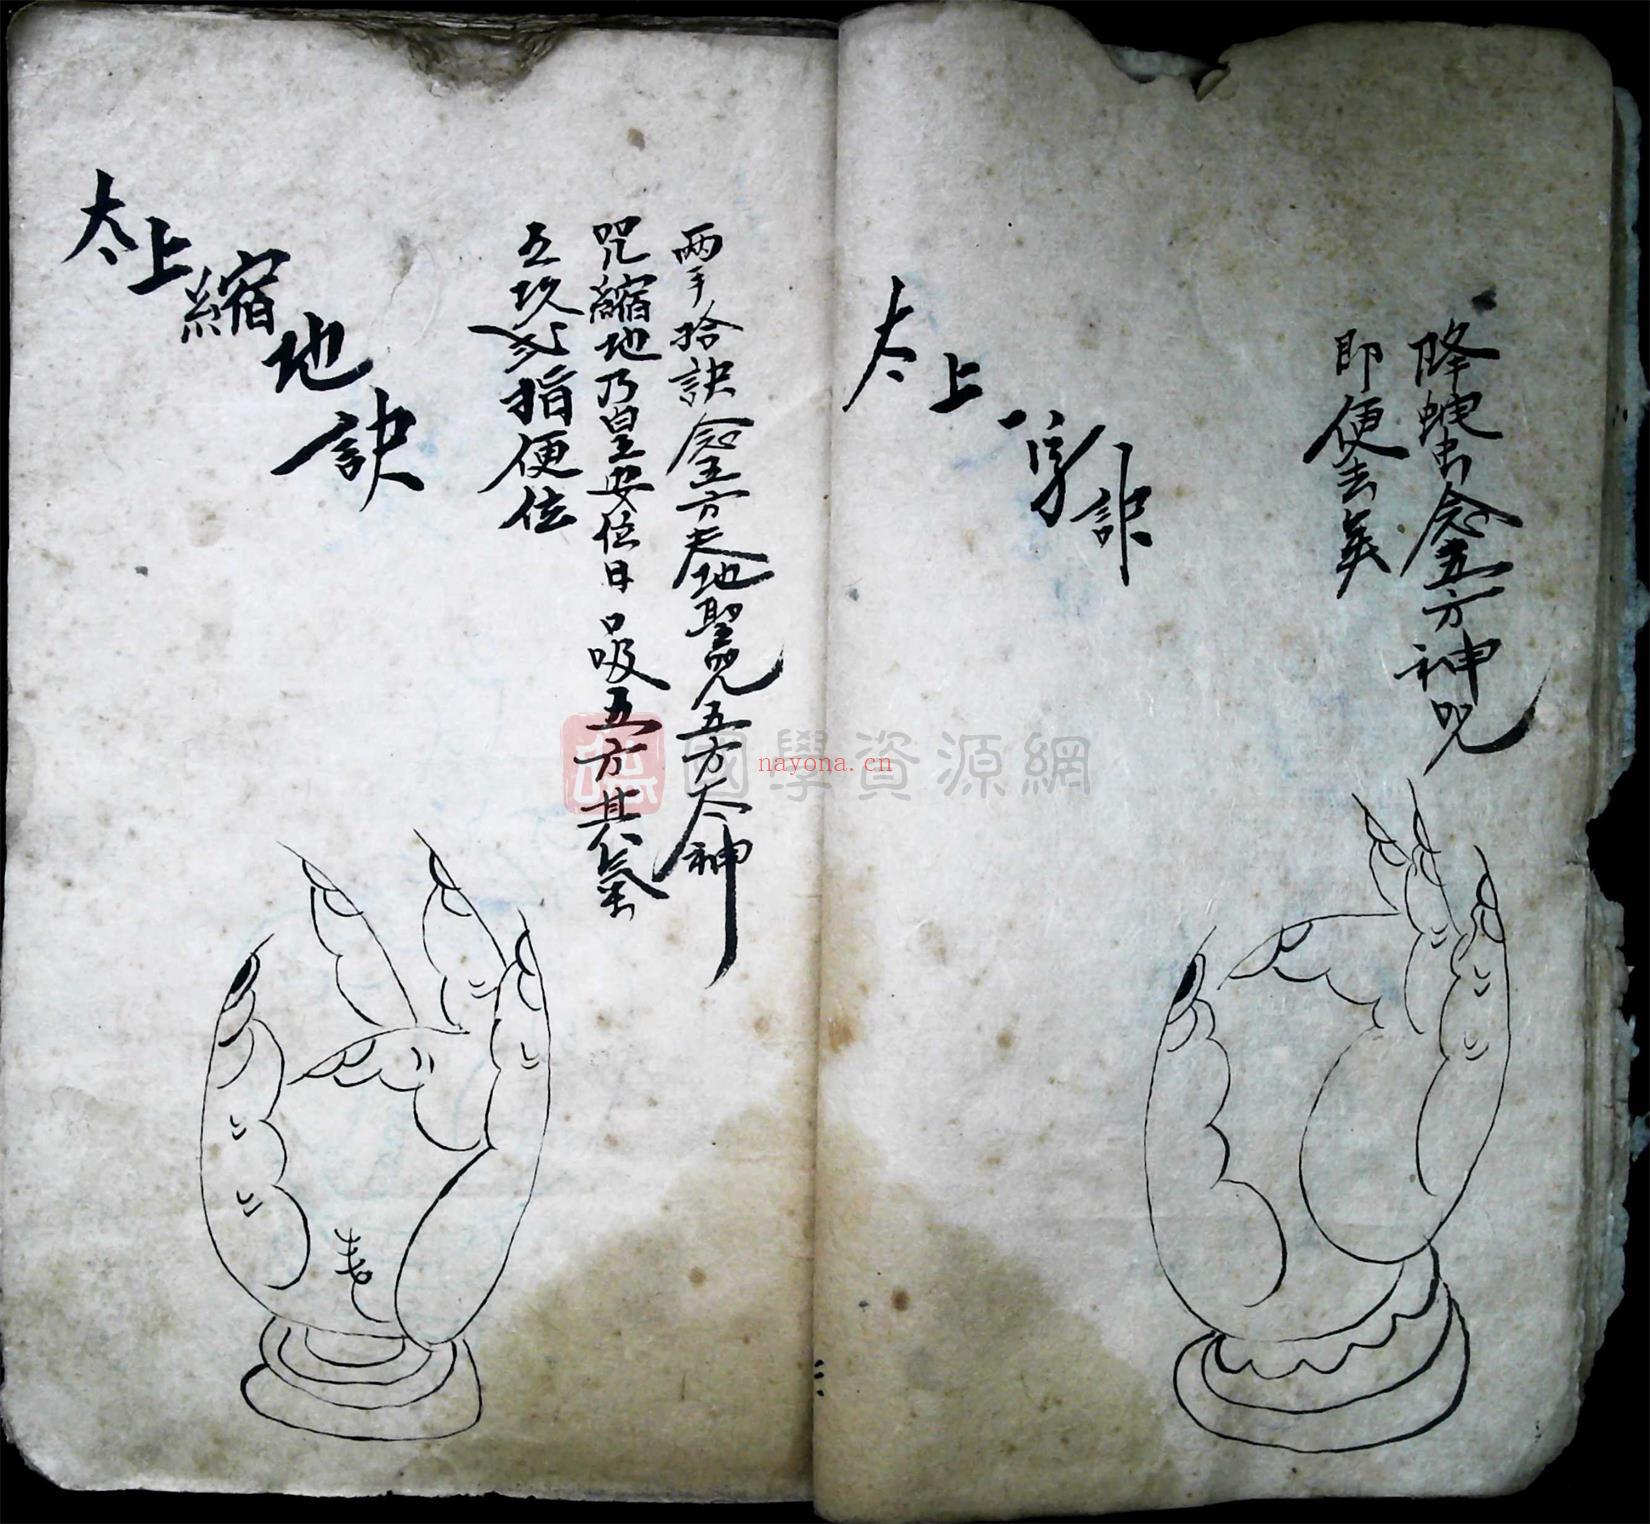 降 念五方神咒
即便去矣
太上 訣
兩手拾訣念五方天地聖咒五方太神
咒縮地乃皇安位日口吸五方其氣
五 指便位
太上縮地訣
國學資源網
nayona.cn